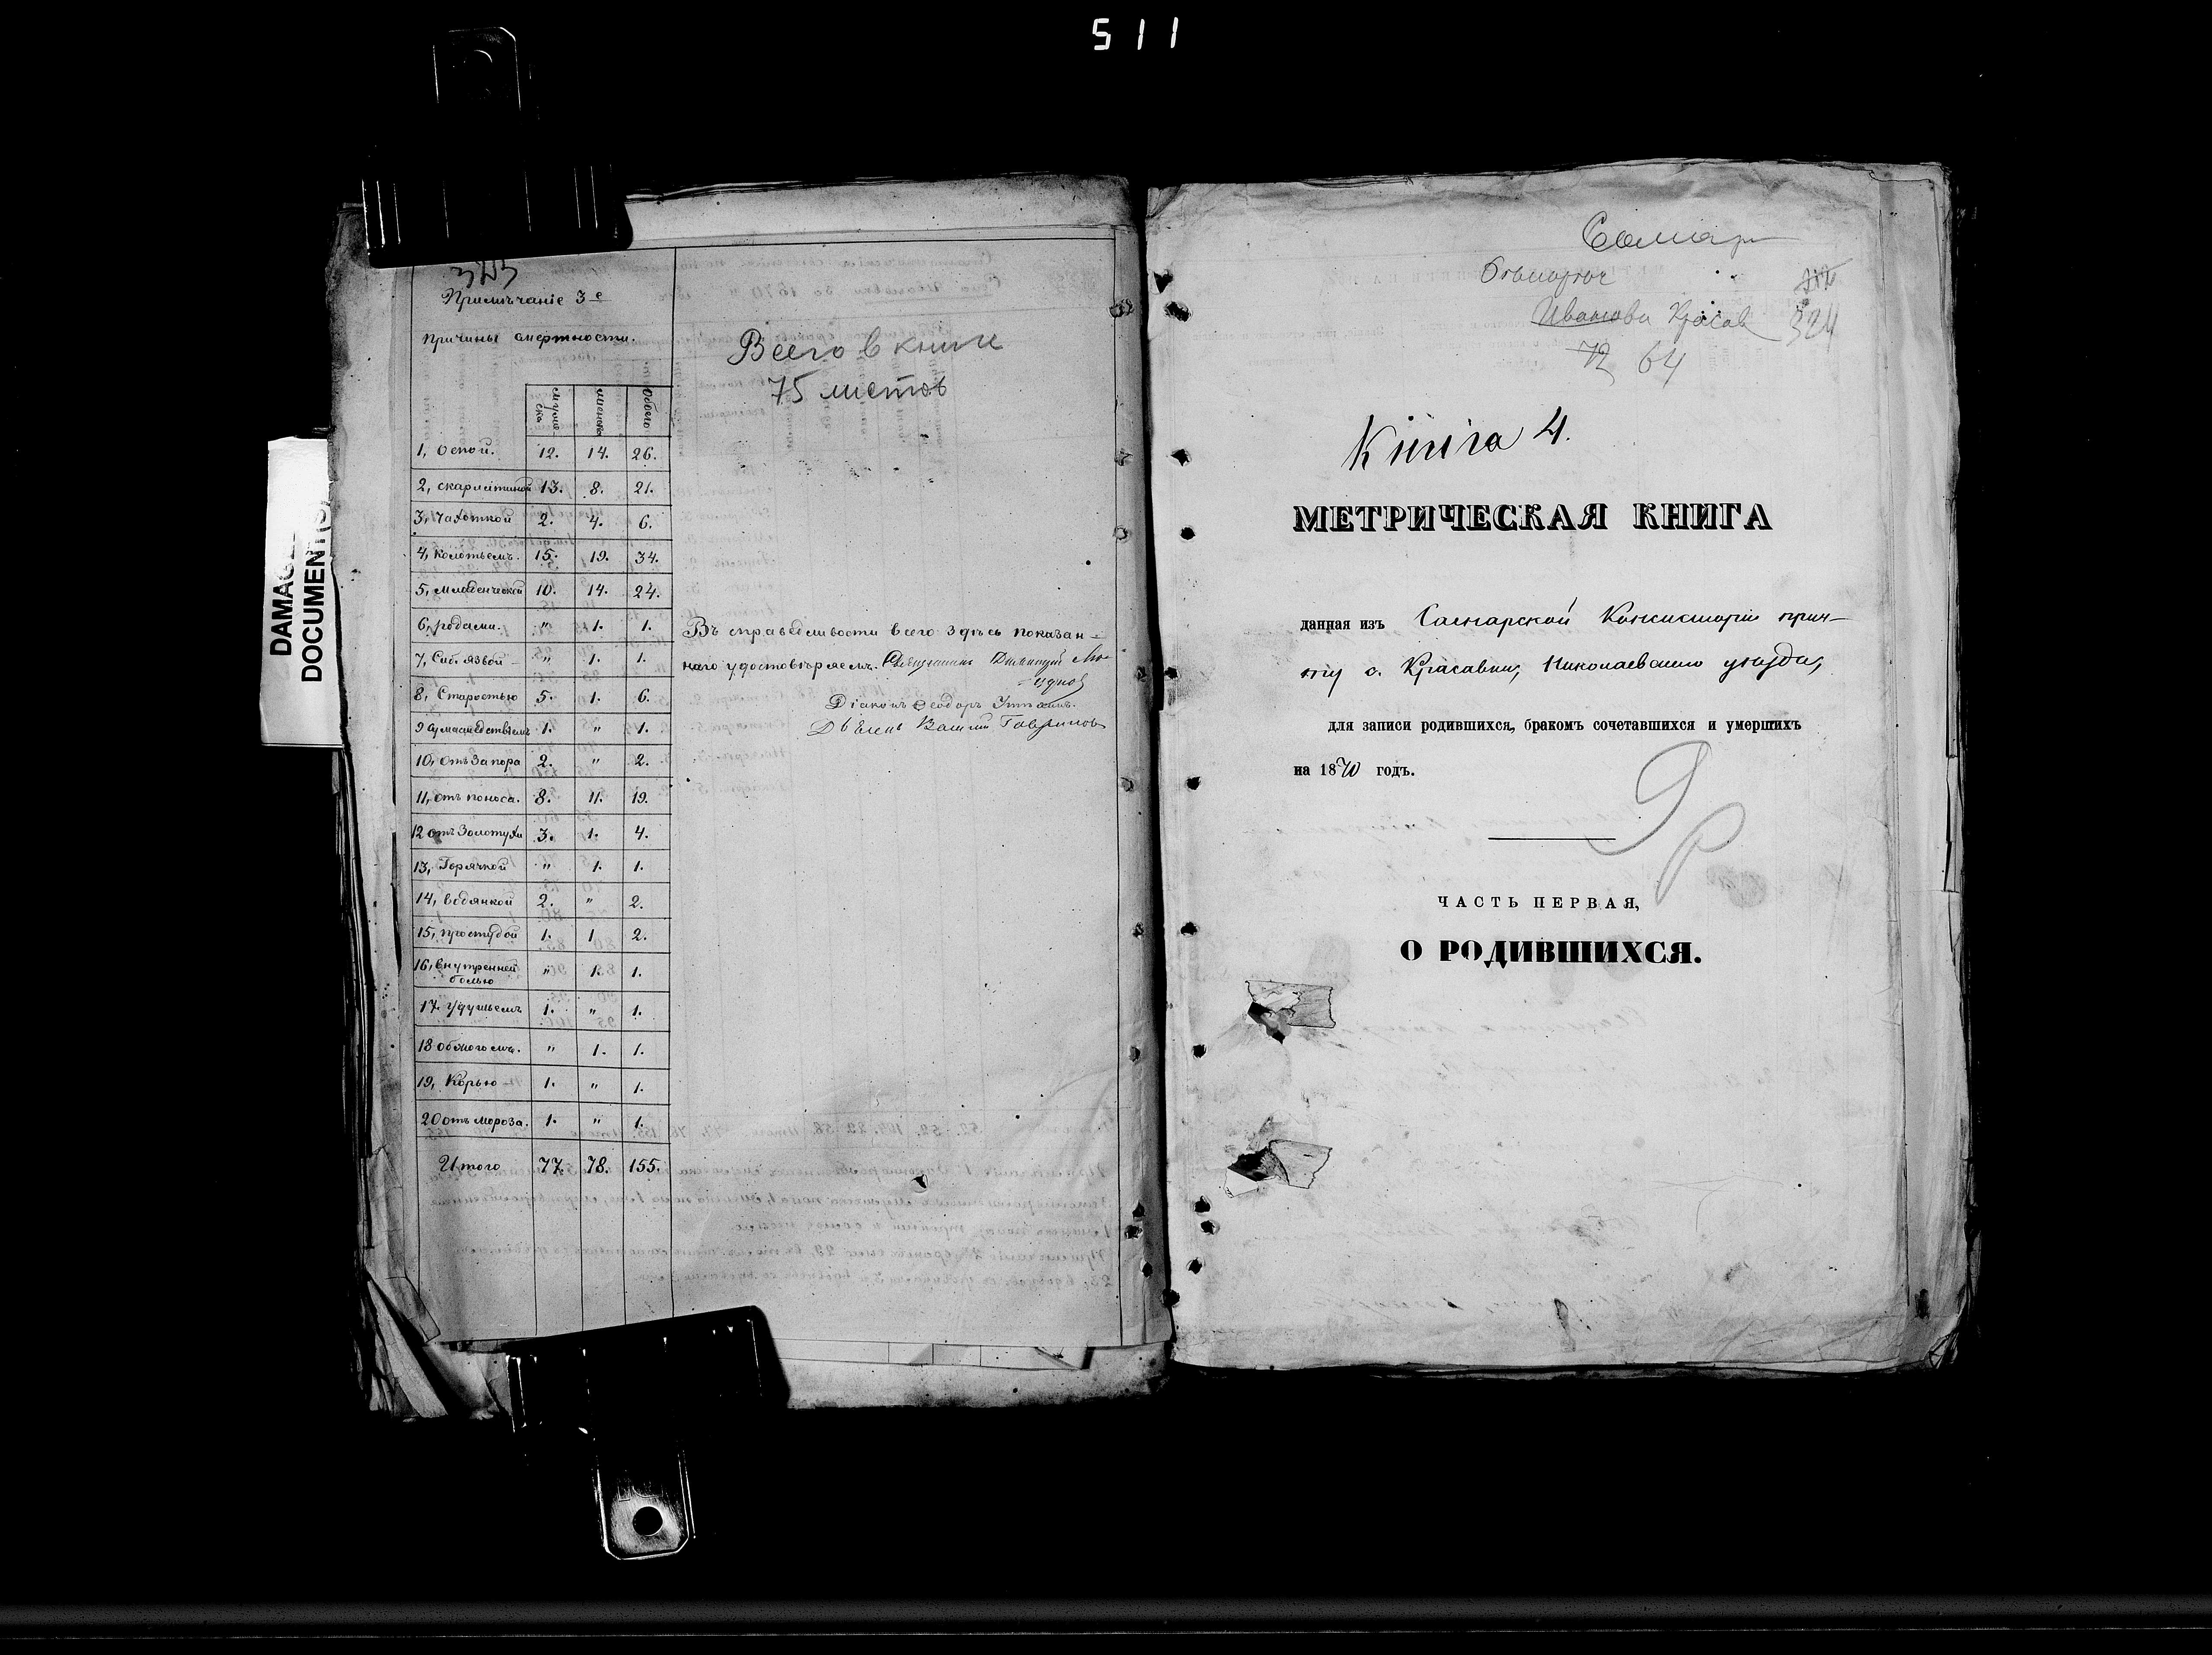 511
DAMAGED
DOCUMENT(S)
323
Примѣчаніе 3е
причины смертности.
мужеска женска Обоего
1, Оспой. 12. 14. 26.
2, скарлатиной 13. 8. 21.
3, Чахоткой 2. 4. 6.
4, Колотьемъ. 15. 19. 34.
5, младенческой 10. 14. 24.
6, родами. " 1. 1.
7, Сиб. язвой " 1. 1.
8, Старостью 5. 1. 6.
9 сумашедствіемъ 1. " 1.
10, отъ Запора 2. " 2.
11, отъ поноса. 8. 11. 19.
12 отъ Золотухи 3. 1. 4.
13, Горячкой " 1. 1.
14, водянкой 2. " 2.
15, простудой 1. 1 2.
16, внутренней " 1. 1.
болью
17. Удушьемъ 1. " 1.
18 обжогомъ. " 1. 1.
19, Корью 1. " 1.
20 отъ мороза. 1. " 1.
Итого 77. 78. 155.
Всего в книге
75 листов
Въ справедливости всего здѣсь показан-
наго удостовѣряемъ. Священникъ Димитрій
Діаконъ Ѳеодоръ
Василій Гавриловъ
Самар
Иванова Красав 324
72 64
Книга 4.
МЕТРИЧЕСКАЯ КНИГА
данная изъ Самарской Консисторіи прич-
ту с. Красавки, Николаевскаго уѣзда,
для записи родившихся, бракомъ сочетавшихся и умершихъ
на 1870 годъ.
ЧАСТЬ ПЕРВАЯ,
О РОДИВШИХСЯ.